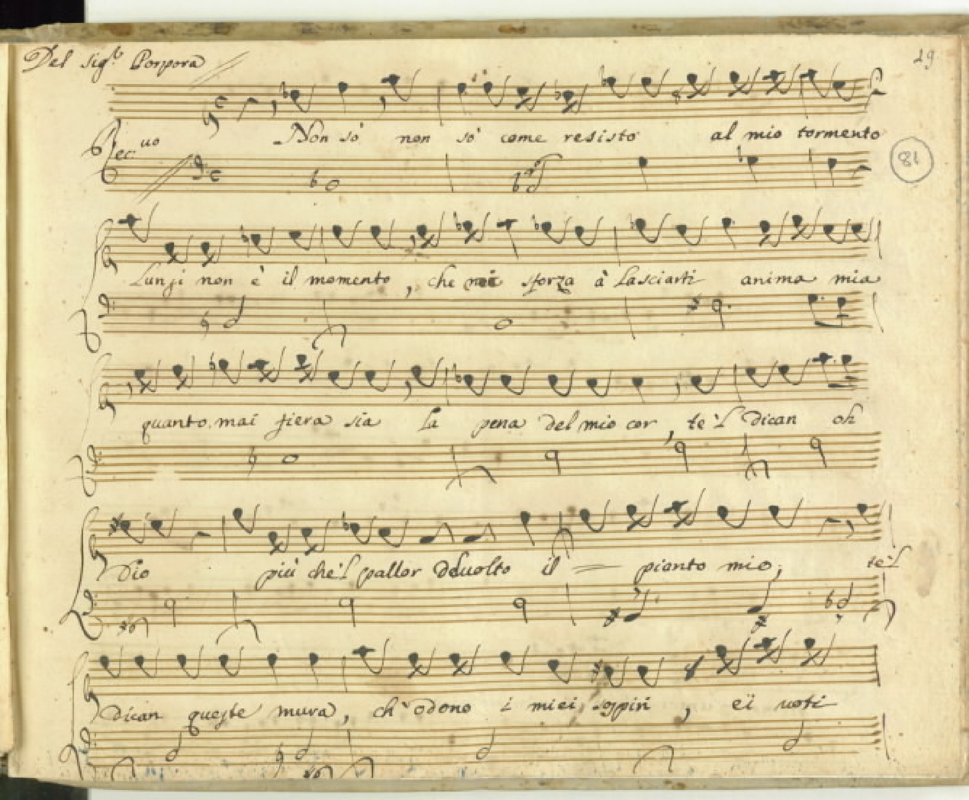 Del Sig.^r Porpora
29
Rec.^uo
Non sò non sò come resisto al mio tormento
81
Lungi non è il momento, che mi sforza à lasciarti anima mia
quanto mai fiera sia la pena del mio cor, te'l dican oh
Dio più che'l pallor del volto il pianto mio, te'l
dican queste mura, ch'odono i miei sospiri, ei voti